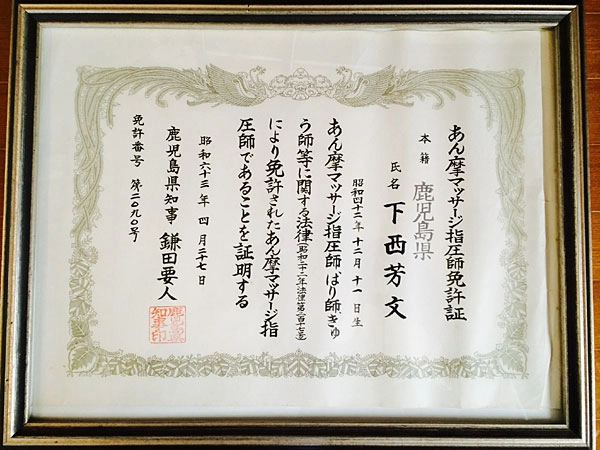 あん摩マッサージ指圧師免許証
本籍 鹿児島県
氏名 下西芳文
昭和四十二年十二月十一日生
あん摩マッサージ指圧師、はり師、きゅ
う師等に関する法律(昭和二十二年法律第二百十七号)
により免許されたあん摩マッサージ指
圧師であることを証明する
昭和六十三年四月二十七日
鹿児島県知事 鎌田要人
免許番号 第二〇九〇号
鹿児島県
知事印